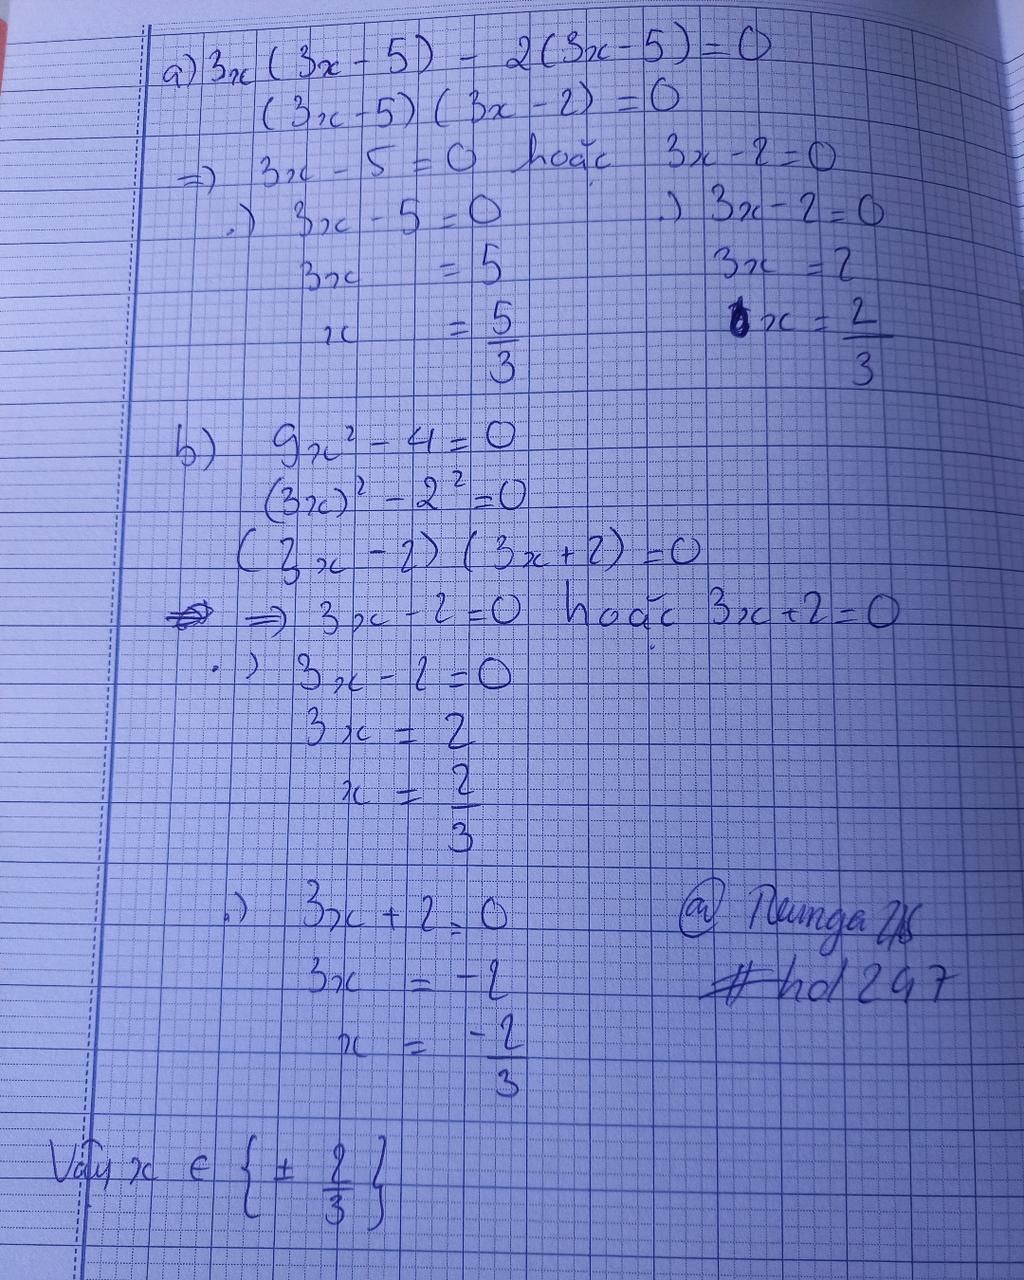 a) 3x(3x-5) - 2(3x-5) = 0
(3x-5)(3x-2) = 0
=> 3x-5 = 0 hoặc 3x-2 = 0
.) 3x-5 = 0 .) 3x-2 = 0
3x = 5 3x = 2
x = 5/3 x = 2/3
b) 9x² - 4 = 0
(3x)² - 2² = 0
(3x-2)(3x+2) = 0
=> 3x-2 = 0 hoặc 3x+2 = 0
.) 3x-2 = 0
3x = 2
x = 2/3
.) 3x+2 = 0
3x = -2
x = -2/3
@
#hd247
Vậy x ∈ {± 2/3}